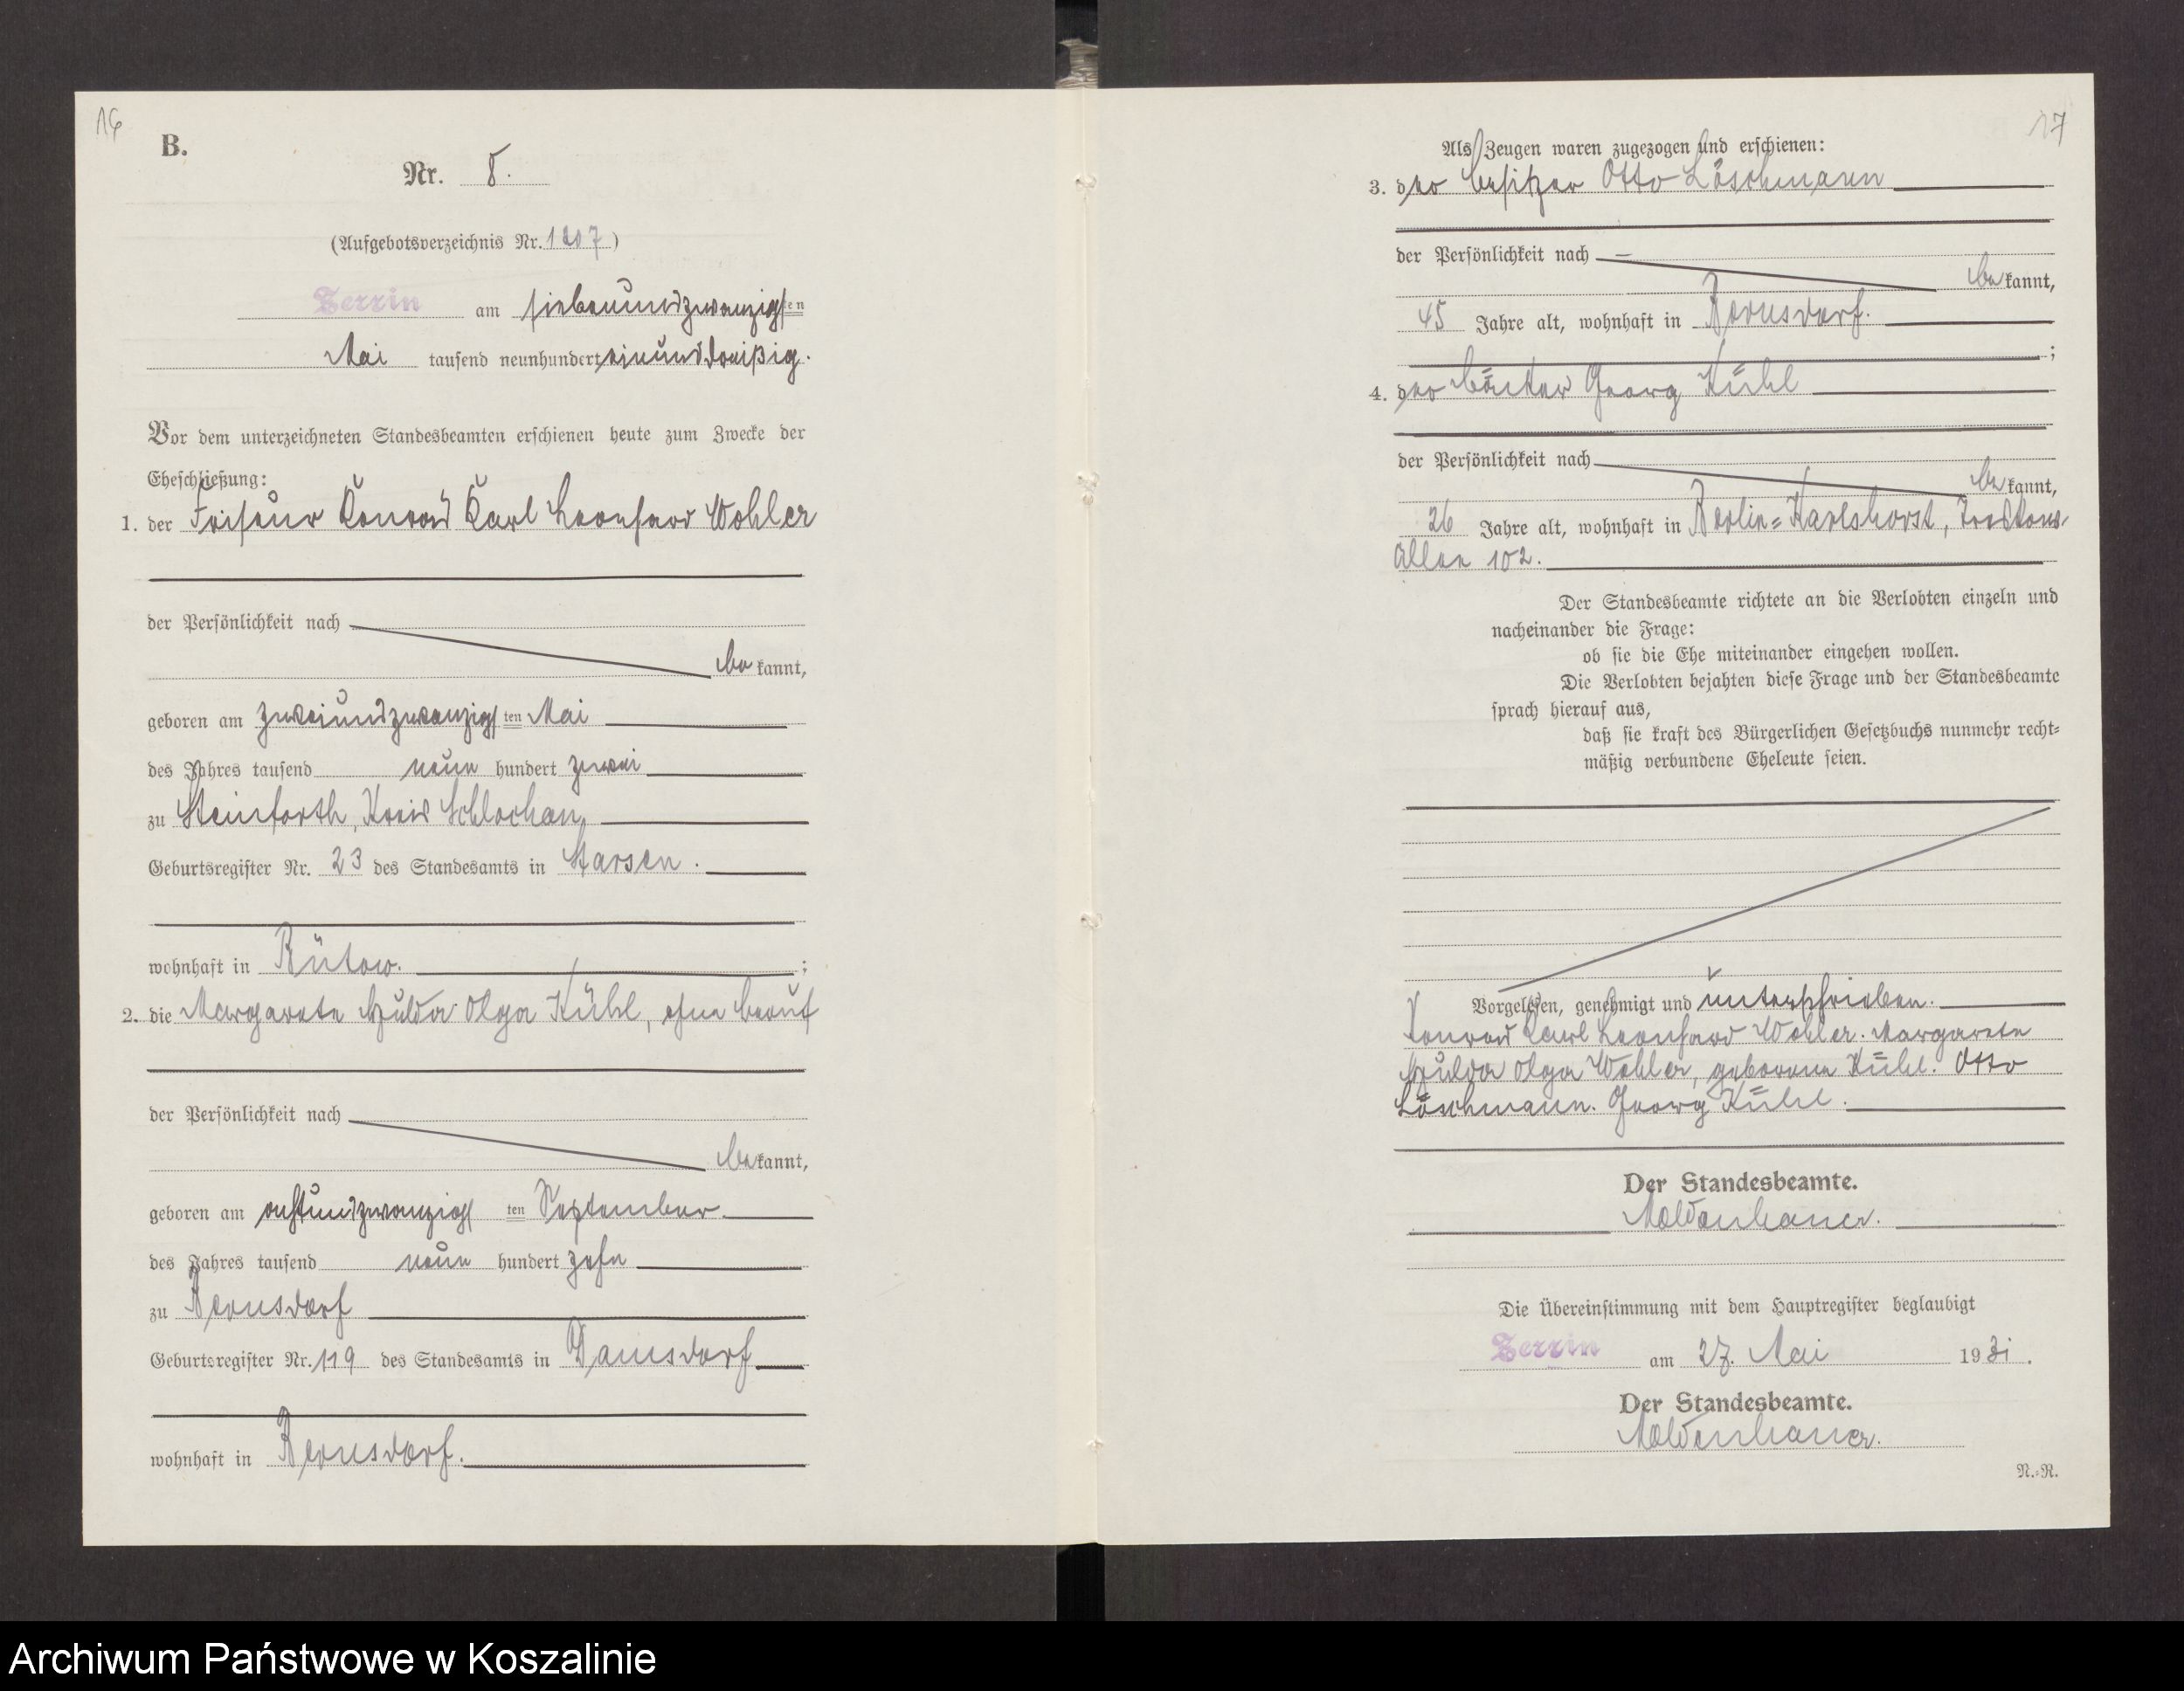 16
B.
Nr. 8.
(Aufgebotsverzeichnis Nr. 1207)
Zerrin am siebenundzwanzigsten
Mai tausend neunhundert einunddreißig.
Vor dem unterzeichneten Standesbeamten erschienen heute zum Zwecke der
Eheschließung:
1. der Friseur Konrad Karl Leonhard Wohler
der Persönlichkeit nach
be kannt,
geboren am zweiundzwanzigsten Mai
des Jahres tausend neun hundert zwei
zu Steinforth, Kreis Schlochau,
Geburtsregister Nr. 23 des Standesamts in Starsen.
wohnhaft in Bütow. ;
2. die Margarete Hulda Olga Kühl, ohne Beruf
der Persönlichkeit nach
be kannt,
geboren am achtundzwanzigsten September
des Jahres tausend neun hundert zehn
zu Bernsdorf
Geburtsregister Nr. 119 des Standesamts in Damsdorf
wohnhaft in Bernsdorf.
17
Als Zeugen waren zugezogen und erschienen:
3. der Besitzer Otto Löschmann
der Persönlichkeit nach
be kannt,
45 Jahre alt, wohnhaft in Bernsdorf.
;
4. der Bäcker Georg Kühl
der Persönlichkeit nach
be kannt,
26 Jahre alt, wohnhaft in Berlin=Karlshorst,
Allee 102.
Der Standesbeamte richtete an die Verlobten einzeln und
nacheinander die Frage:
ob sie die Ehe miteinander eingehen wollen.
Die Verlobten bejahten diese Frage und der Standesbeamte
sprach hierauf aus,
daß sie kraft des Bürgerlichen Gesetzbuchs nunmehr recht=
mäßig verbundene Eheleute seien.
Vorgelesen, genehmigt und unterschrieben.
Konrad Karl Leonhard Wohler. Margarete
Hulda Olga Wohler, geborene Kühl. Otto
Löschmann. Georg Kühl.
Der Standesbeamte.
Moldenhauer.
Die Übereinstimmung mit dem Hauptregister beglaubigt
Zerrin am 27. Mai 1931.
Der Standesbeamte.
Moldenhauer.
N.=R.
Archiwum Państwowe w Koszalinie